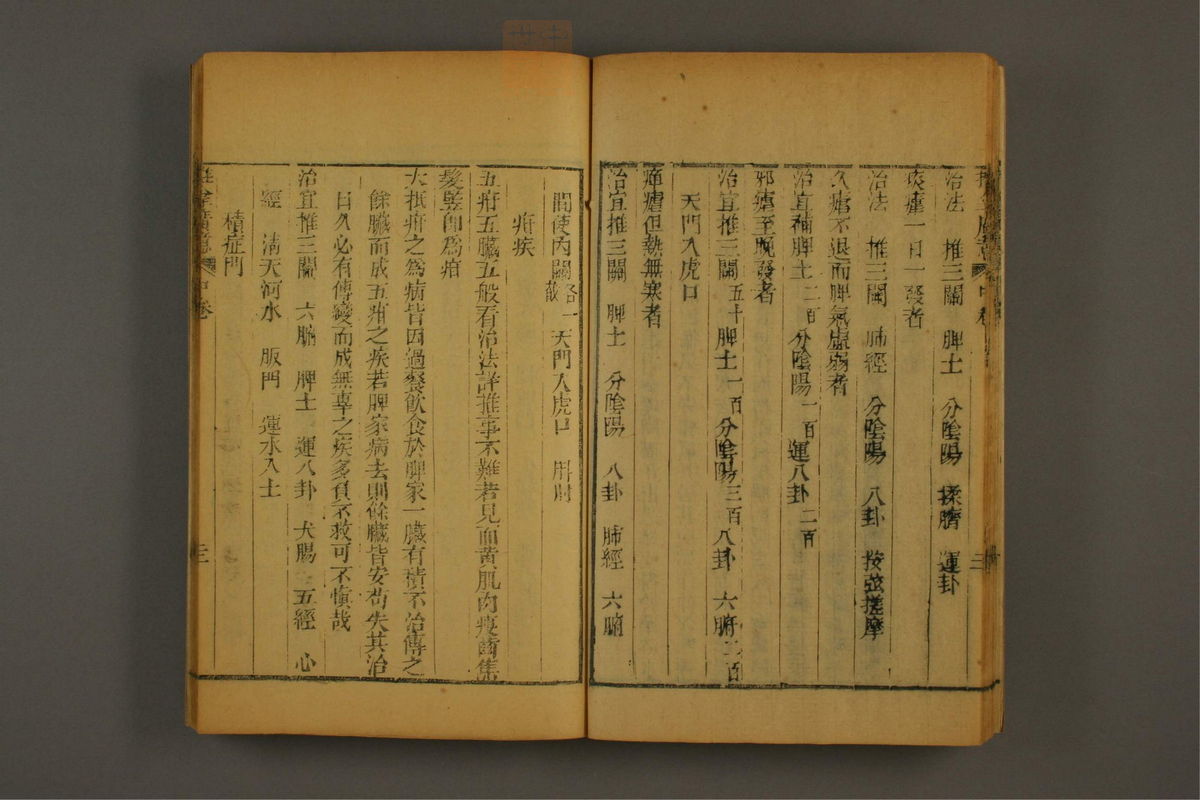 治法　推三關　脾土　分陰陽　揉臍　運卦
痰瘧一日一發者
治法　推三關　肺經　分陰陽　八卦　按弦搓摩
久瘧不退而脾氣虛弱者
治宜補脾土二百分陰陽一百運八卦二百
邪瘧至晚發者
治宜推三關五十脾土一百分陰陽三百八卦　六腑二百
天門入虎口
癉瘧但熱無寒者
治宜推三關　脾土　分陰陽　八卦　肺經　六腑
間使內關各一截　天門入虎口　㪷肘
疳疾
五疳五臟五般看治法詳推事不難若見面黃肌肉瘦齒焦
髮豎即爲疳
大抵疳之爲病皆因過餐飲食於脾家一臟有積不治傳之
餘臟而成五疳之疾若脾家病去則餘臟皆安茍失其治
日久必有傳變而成無辜之疾多負不救可不慎哉
治宜推三關　六腑　脾土　運八卦　大腸　五經　心
經　清天河水　版門　運水入土
積症門
推拿廣意　中卷　三